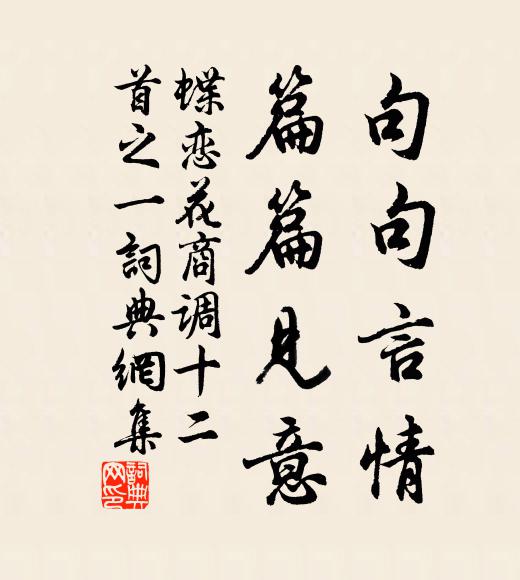 句句言情
篇篇見意
蝶恋花商调十二
首之一詞典網集
詞典
网印